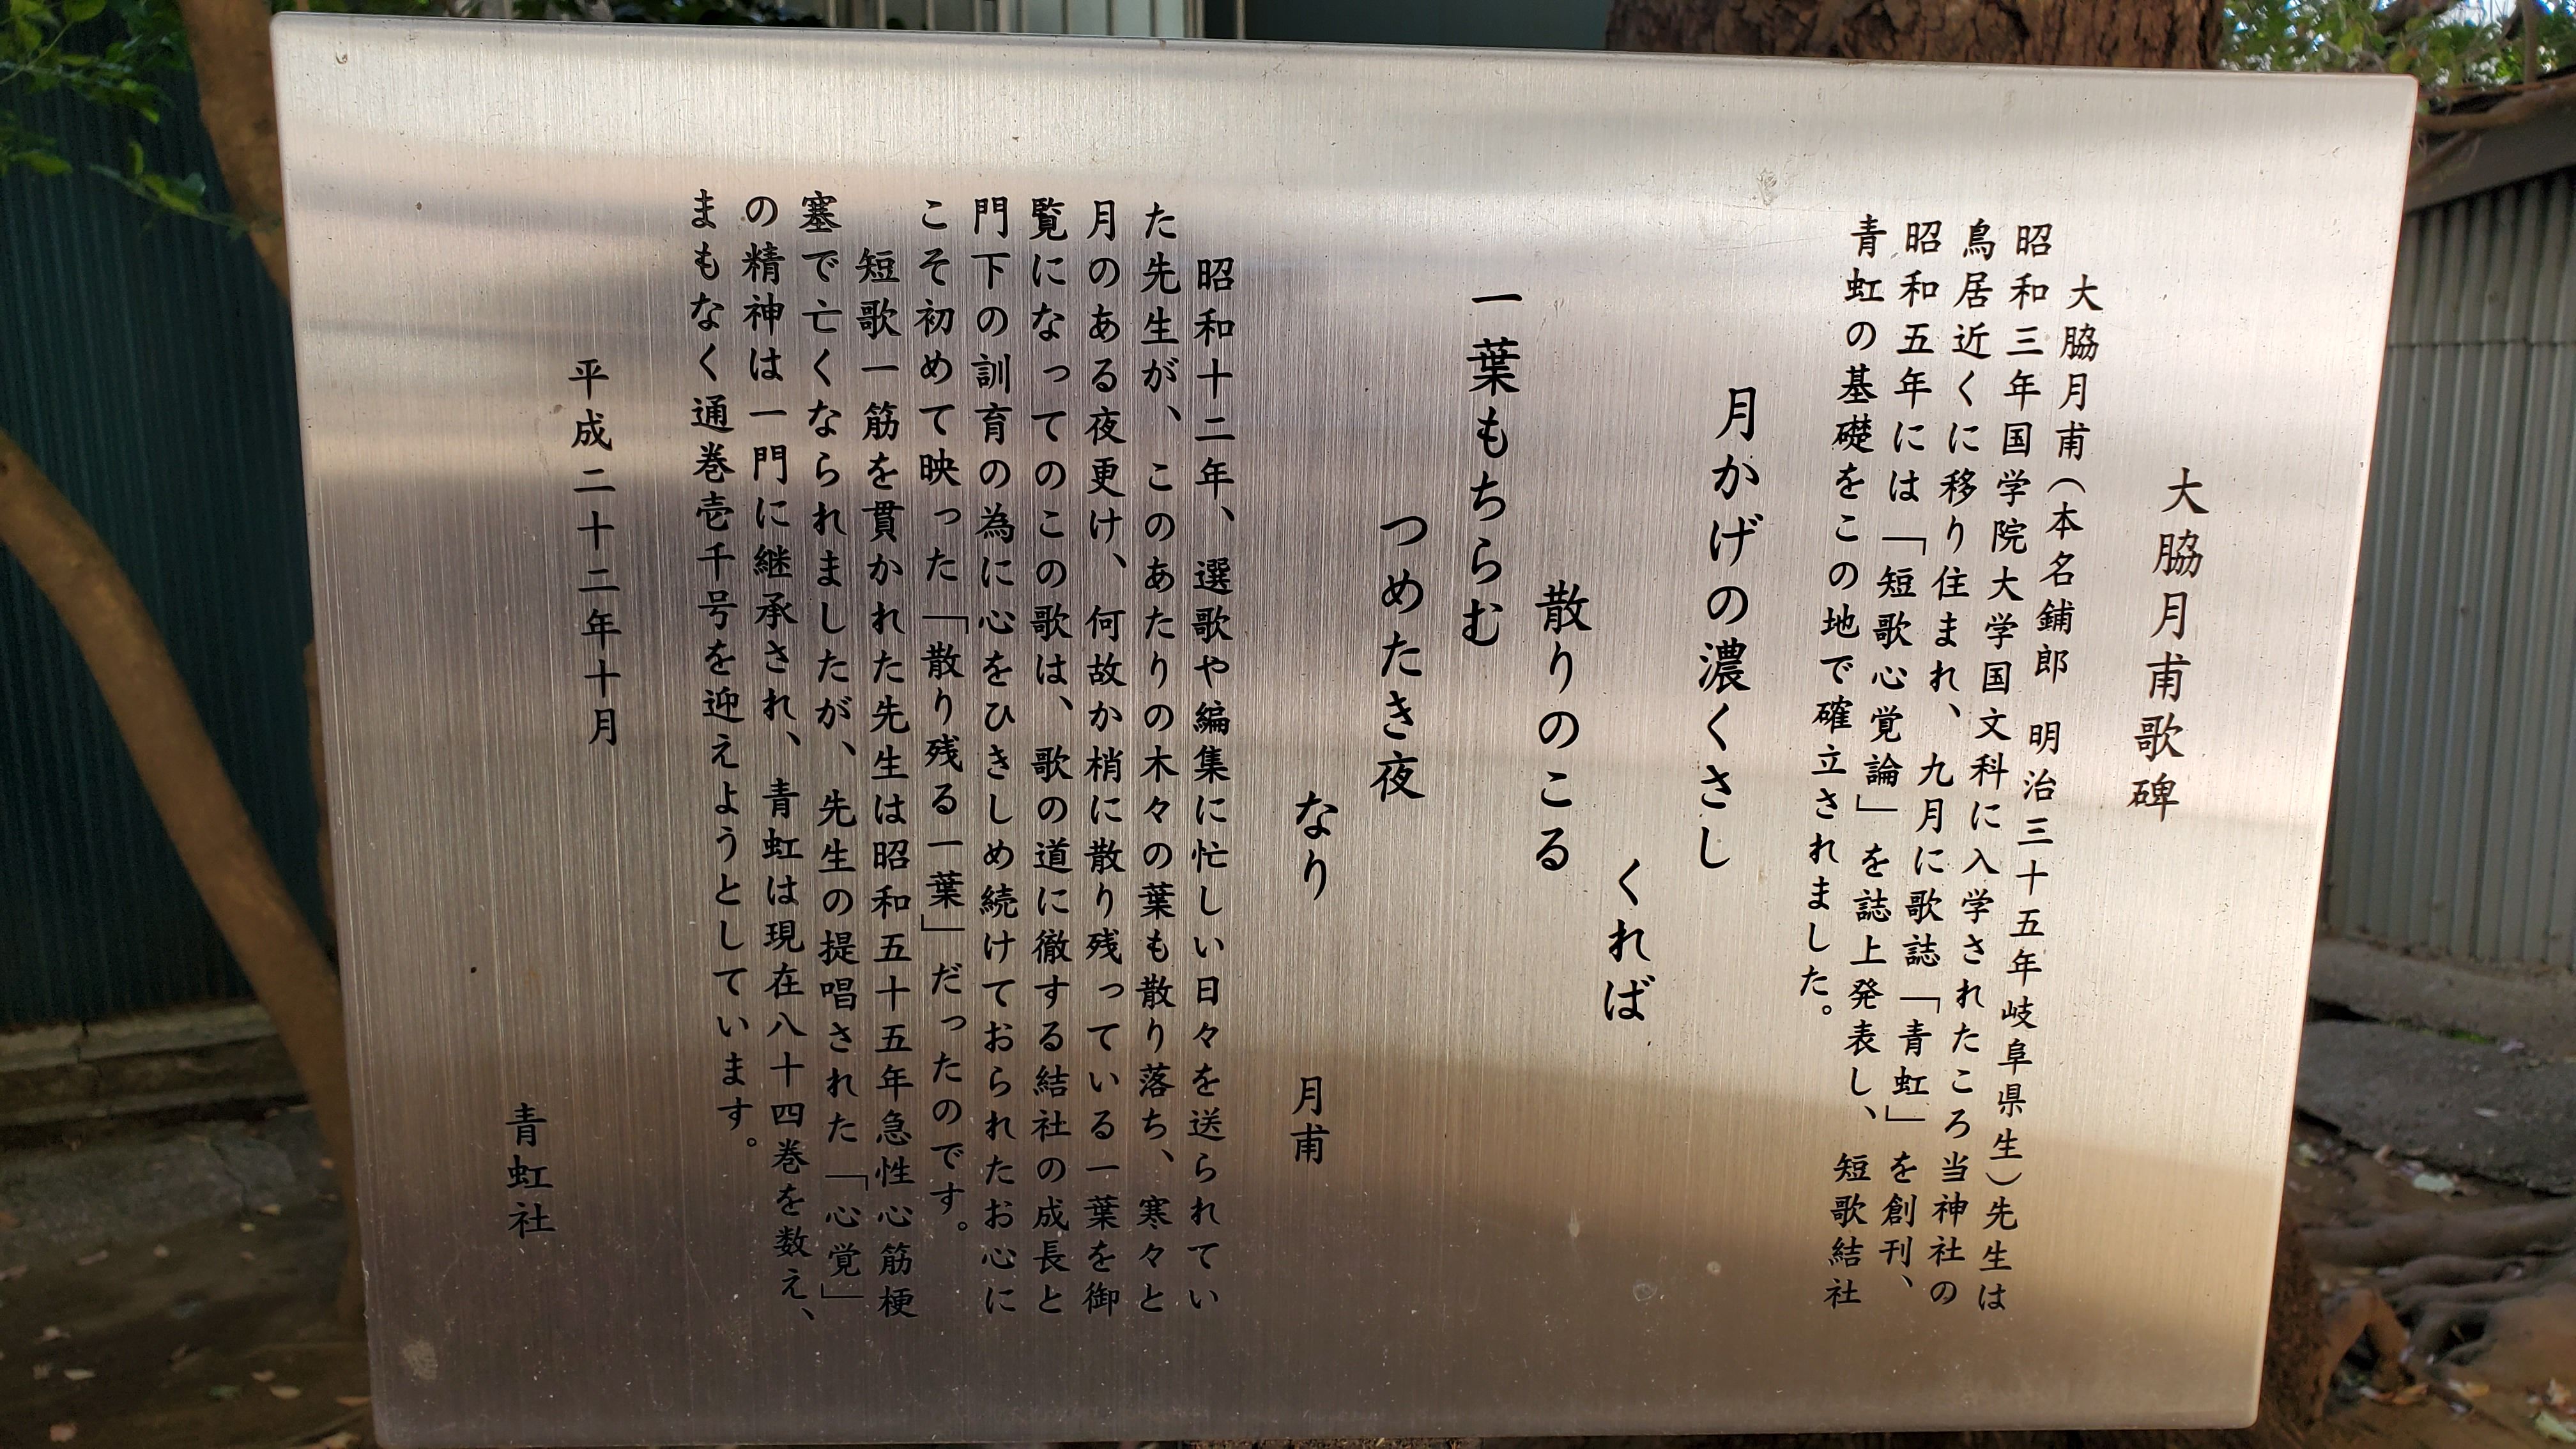 大脇月甫歌碑
大脇月甫（本名鋪郎　明治三十五年岐阜県生）先生は
昭和三年国学院大学国文科に入学されたころ当神社の
鳥居近くに移り住まれ、九月に歌誌「青虹」を創刊、
昭和五年には「短歌心覚論」を誌上発表し、短歌結社
青虹の基礎をこの地で確立されました。
月かげの濃くさし
くれば
散りのこる
一葉もちらむ
つめたき夜
なり
月甫
昭和十二年、選歌や編集に忙しい日々を送られてい
た先生が、このあたりの木々の葉も散り落ち、寒々と
月のある夜更け、何故か梢に散り残っている一葉を御
覧になってのこの歌は、歌の道に徹する結社の成長と
門下の訓育の為に心をひきしめ続けておられたお心に
こそ初めて映った「散り残る一葉」だったのです。
短歌一筋を貫かれた先生は昭和五十五年急性心筋梗
塞で亡くなられましたが、先生の提唱された「心覚」
の精神は一門に継承され、青虹は現在八十四巻を数え、
まもなく通巻壱千号を迎えようとしています。
平成二十二年十月
青虹社